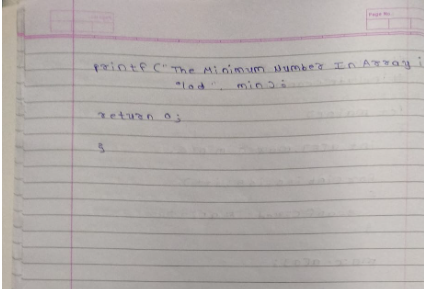 Page No.
printf("The Minimum Number In Array :
%d", min);
return 0;
}